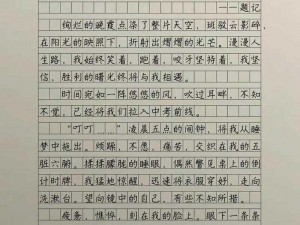 ——题记
绚烂的晚霞点染了整片天空，斑驳云影碎，
在阳光的映照下，折射出熠熠的光芒。漫漫人
生路，我始终笑着，跑着，咬牙坚持着，我坚
信，胜利的曙光终将与我相遇。
时间宛如一阵悠悠的风，吹过耳畔，不知
不觉，已经将我们拉入中考前线。
“叮叮……”凌晨五点的闹钟，将我从睡
梦中拖出。烦躁、不愿、痛苦，交织在我的五
脏六腑。揉揉朦胧的睡眼，偶然瞥见桌上的倒
计时牌，我猛地惊醒，迅速将衣服穿好，走向
洗漱台。望向镜中的自己，有些不可置信。
疲惫，憔悴，刻在我的脸上。眼下一条条